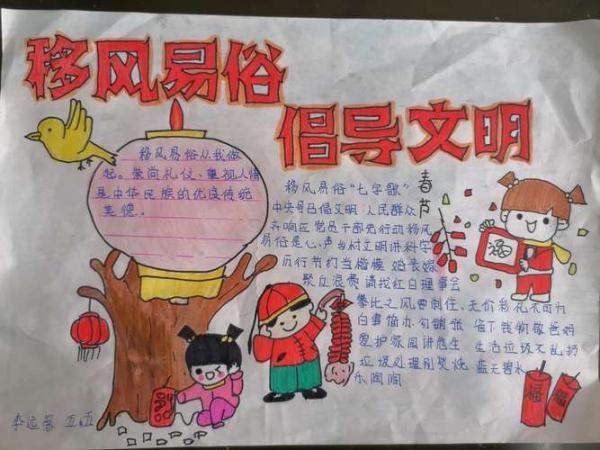 移风易俗
倡导文明
移风易俗从我做
起。崇尚礼仪、重视人情
是中华民族的优良传统
美德。
春节
移风易俗“七字歌”
中央号召倡文明 人民群众
齐响应党员干部先行动移风
易俗是心声乡村文明讲科学
厉行节约当楷模 婚丧嫁
聚血浪费 请找红白理事会
攀比之风要刹住、无价彩礼不可为
白事简办勿铺张 省下钱钩敬爸妈
爱护家园讲卫生 生活垃圾不乱扔
垃圾处理别焚烧 蓝天碧水
乐陶陶
福
福
福
五.五